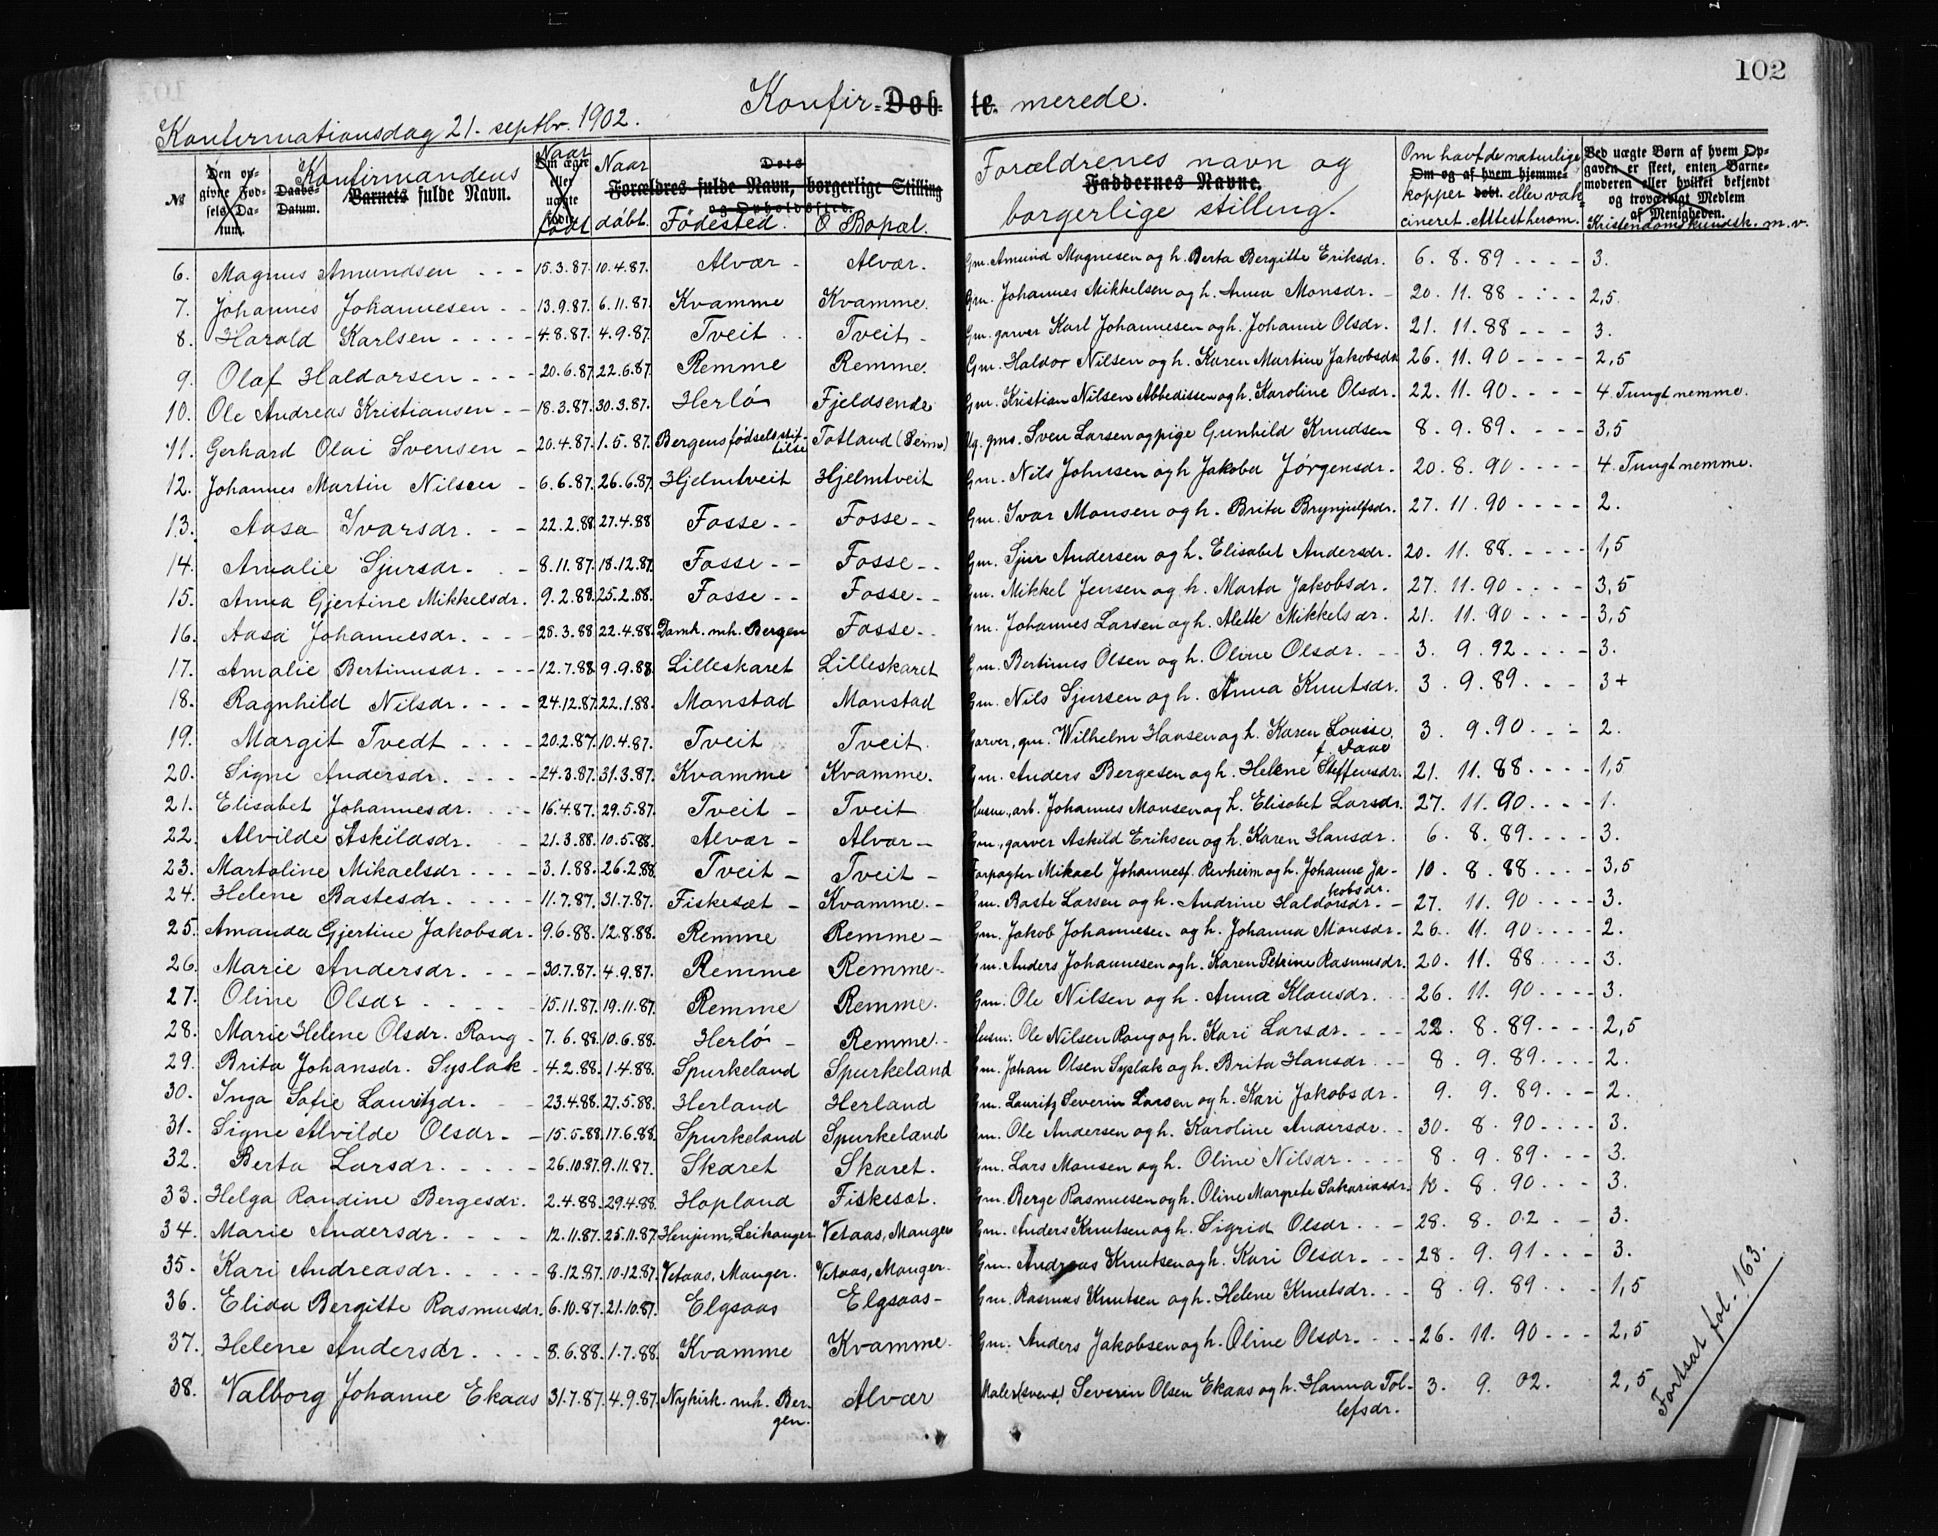 102
Konfir- Døb- te. merede.
Konfirmationsdag 21. septbr. 1902.
№ Den opgivne Fødsels-Datum. Daabs-Datum. Konfirmandens Barnets fulde Navn. Naar Om ægte eller uægte født. født Naar døbt. Dets Forældres fulde Navn, borgerlige Stilling og Opholdssted. Fødested. & Bopæl. Forældrenes navn og Faddernes Navne. borgerlige stilling. Om havt de naturlige Om og af hvem hjemmedøbt. kopper eller vakcineret. Attest herom. Ved uægte Børn af hvem Opgaven er skeet, enten Barnemoderen eller hvilket bekjendt og troværdigt Medlem af Menigheden. Kristendomskundsk. m.v.
6. Magnus Amundsen - - - 15.3.87. 10.4.87. Alvær - Alvær. Gm. Amund Magnesen og h. Berta Bergitte Eriksdr. 6. 8. 89 - - - - 3.
7. Johannes Johannesen - - 13.9.87. 6.11.87. Kvamme Kvamme. Gm. Johannes Mikkelsen og h. Anna Monsdr. - 20. 11. 88 - - - 2,5.
8. Harald Karlsen - - - - - 4.8.87. 4.9.87. Tveit - - Tveit - Gm. garver Karl Johannesen og h. Johanne Olsdr. 21. 11. 88 - - - 3.
9. Olaf Haldorsen - - - - 20.6.87. 22.6.87. Remme Remme. Gm. Haldor Nilsen og h. Karen Martine Jakobsdr. 26. 11. 90 - - - - 2,5
10. Ole Andreas Kristiansen - - 18.3.87. 30.3.87. Herlø Fjeldsende Gm. Kristian Nilsen Abbedissen og h. Karoline Olsdr. 22. 11. 90 - - - - 4. Tungt nemme.
11. Gerhard Olai Svensen - 20.4.87. 1.5.87. Bergens fødselsstiftelse Totland (Seim) Ug. gms. Sven Larsen og pige Gunhild Knudsen 8. 9. 89. - - - 3,5
12. Johannes Martin Nilsen - 6.6.87. 26.6.87. Hjelmtveit Hjelmtveit Gm. Nils Johnsen og h Jakoba Jørgensdr. 20. 8. 90 - - - - 4. Tungt nemme.
13. Aasa Ivarsdr. - - 22.2.88. 27.4.88 Fosse - - Fosse - - Gm. Ivar Monsen og h. Brita Brynjulfsdr. 27. 11. 90 - - - - 2.
14. Amalie Sjursdr. - - 8.11.87. 18.12.87. Fosse - - Fosse - - Gm. Sjur Andersen og h. Elisabet Andersdr. 20. 11. 88. - - - - 1,5
15. Anna Gjertine Mikkelsdr. 9.2.88. 25.2.88. Fosse - - Fosse - - Gm. Mikkel Jensen og h. Marta Jakobsdr. 27. 11. 90 - - - - 3,5
16. Aasa Johannesdr. - - - 28.3.88 22.4.88. Domk. mh. Bergen Fosse - - Gm. Johannes Larsen og h. Alette Mikkelsdr. 21. 11. 90 - - - - 3,5
17. Amalie Bertinusdr. - - - 12.7.88 9.9.88 Lilleskaret Lilleskaret Gm. Bertinus Olsen og h. Oline Olsdr. - - 3. 9. 92 - - - - 3.
18. Ragnhild Nilsdr. - - - - 24.12.87. 22.1.88. Monstad Monstad Gm. Nils Sjursen og h. Anna Knutsdr. 3. 9. 89. - - - 3+
19. Margit Tvedt - - - - 20.2.87. 10.4.87. Tveit Tveit. Garver, gm. Wilhelm Hansen og h. Karen Louise. 3. 9. 90 - - - 2.
20. Signe Andersdr. - - - - 24.3.87. 31.3.87. Kvamme Kvamme. Gm. Anders Bergesen og h. Helene Steffensdr. 21. 11. 88 - - - - 1,5
21. Elisabet Johannesdr. - - - 16.4.87. 29.5.87. Tveit - Tveit Husm., arb. Johannes Monsen og h. Elisabet Larsdr. 27. 11. 90 - - - - 1.
22. Alvilde Askildsdr. - - 21.3.88. 10.5.88. Alvær - Alvær - Gm., garver Askild Eriksen og h. Karen Hansdr. 6. 8. 89 - - - - 3.
23. Martoline Mikaelsdr - - - - 3.1.88. 26.2.88. Tveit - Tveit - Forpagter Mikael Johannesf. Revheim og h. Johanne Jakobsdr. 10. 8. 88 - - - - 3,5
24. Helene Bastesdr. - - - - - 11.7.87. 31.7.87. Fiskesæt - Kvamme. - Gm. Baste Larsen og h. Andrine Haldorsdr. - 27. 11. 90 - - - - 3.
25. Amanda Gjertine Jakobsdr. 9.6.88. 12.8.88. Remme Remme - Gm. Jakob Johannesen og h. Johanna Monsdr. 26. 11. 90 - - - - 2.
26. Marie Andersdr. - - - - 30.7.87. 4.9.87. Remme Remme - Gm. Anders Johannesen og h. Karen Petrine Rasmusdr. 20. 11. 88 - - - - 3.
27. Oline Olsdr - - - - - 15.11.87. 19.11.87. Remme Remme. Gm. Ole Nilsen og h. Anna Klausdr. - - 26. 11. 90 - - - - 3.
28. Marie Helene Olsdr. Rong - 7.6.88. 10.6.88. Herlø - Remme - Husm. Ole Nilsen Rong og h. Kari Larsdr. - - - 22. 8. 89 - - - - 2,5
29. Brita Johansdr. Syslak - 4.2.88. 1.4.88. Spurkeland Spurkeland Gm. Johan Olsen Syslak og h. Brita Hansdr. - - 8. 9. 89 - - - - 2.
30. Inga Sofie Lauritzdr. - - 23.4.88. 27.5.88. Herland Herland Gm. Lauritz Severin Larsen og h. Kari Jakobsdr. - 9. 9. 89 - - - 2.
31. Signe Alvilde Olsdr. - - 15.5.88. 17.6.88. Spurkeland Spurkeland Gm. Ole Andersen og h. Karoline Andersdr. - 30. 8. 90 - - - - 3.
32. Berta Larsdr. - - - - - 26.10.87. 9.11.87. Skaret Skaret. Gm. Lars Monsen og h. Oline Nilsdr. - - - 8. 9. 89 - - - 3.
33. Helga Randine Bergesdr. 2.4.88. 29.4.88 Hopland Fiskesæt. Gm. Berge Rasmusen og h. Oline Margrete Sakariasdr. 8. 90 - - - 3.
34. Marie Andersdr. - - - - 12.11.87. 25.11.87. Henjum, Leikanger Vetaas, Manger Gm. Anders Knutsen og h. Sigrid Olsdr. - - - 28. 8. 02 - - 3.
35. Kari Andreasdr. - - - - - 8.12.87. 10.12.87. Vetaas, Manger. Vetaas, Manger. Gm. Andreas Knutsen og h. Kari Olsdr. - - - 28. 9. 91 - - - 3.
36. Elida Bergitte Rasmusdr. 6.10.87. 21.10.87. Elgsaas Elgsaas - Gm. Rasmus Knutsen og h. Helene Knutsdr. - - - 8. 9. 89 - - - 1,5
37. Helene Andersdr. - - - - 8.6.88. 1.7.88. Kvamme Kvamme. Gm. Anders Jakobsen og h. Oline Olsdr. - - - 26. 11. 90 - - - 2,5
38. Valborg Johanne Ekaas 31.7.87. 4.9.87. Nykirk. mh. Bergen. Alvær Maler(svend) Severin Olsen Ekaas og h. Hanna Tollefsdr. 3. 9. 02. 2,5
Fortsat fol. 163.